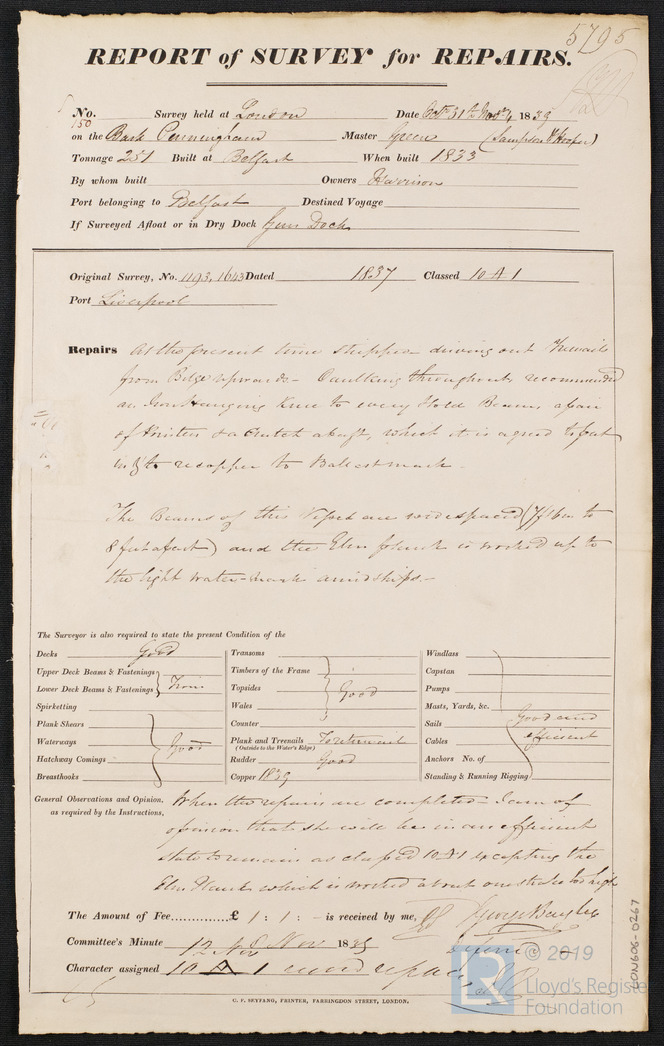 5795
REPORT of SURVEY for REPAIRS.
No. 150 Survey held at London Date Octr 31st Novr 1839
on the Bark Cunningham Master Green (Sampson V Hooper)
Tonnage 251 Built at Belfast When built 1833
By whom built Owners Harrison
Port belonging to Belfast Destined Voyage
If Surveyed Afloat or in Dry Dock Gun Dock
Original Survey, No. 1193, 1643 Dated 1837 Classed 10 A 1
Port Liverpool
Repairs At the present time shipped driving out Treenails
from Bilge upwards – Caulking throughout, recommended
an Iron Hanging Knee to every Hold Beam, a pair
of Pointers & a Crutch abaft, which it is agreed to put
in & to recopper to Ballast mark.
The Beams of this Vessel are widespaced (7ft 6in to
8 feet apart) and the Elm plank is worked up to
the light water-mark amidships.–
The Surveyor is also required to state the present Condition of the
Decks Good
Upper Deck Beams & Fastenings
Lower Deck Beams & Fastenings Iron
Spirketting
Plank Shears
Waterways Good
Hatchway Comings
Breasthooks
Transoms
Timbers of the Frame
Topsides Good
Wales
Counter
Plank and Treenails
(Outside to the Water's Edge)
Rudder Good
Copper 1839
Windlass
Capstan
Pumps
Masts, Yards, &c.
Sails Good and
Cables efficient
Anchors No. of
Standing & Running Rigging
General Observations and Opinion, When the repairs are completed I am of
as required by the Instructions, opinion that she will be in an efficient
state to remain as classed 10 A 1 excepting the
Elm Plank which is worked about one strake too high
The Amount of Fee £ 1 : 1 : – is received by me, George Bayley
Committee's Minute 12 Nov 1839
Character assigned 10 A 1 and repairs
C. F. SEYFANG, PRINTER, FARRINGDON STREET, LONDON.
LON606-0267
LR © 2019
Lloyd's Register
Foundation